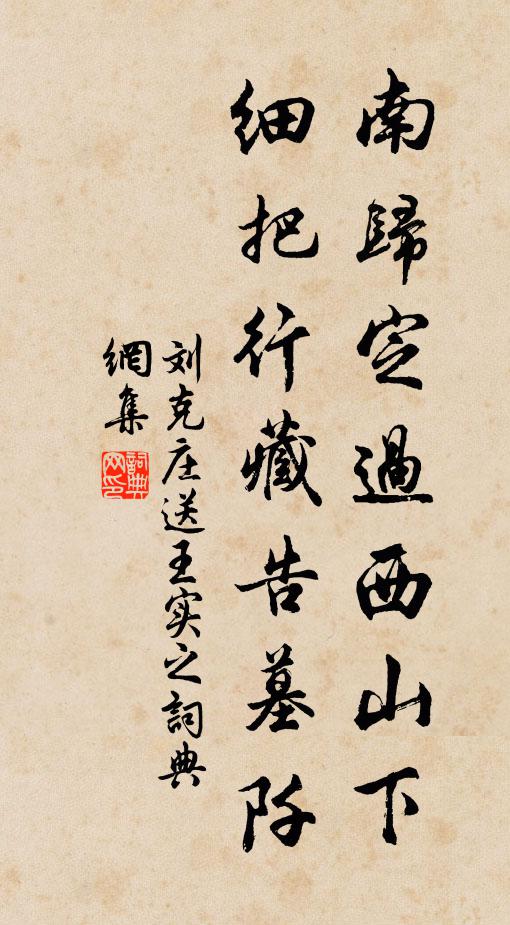 南歸定過西山下
细把行藏告墓阡
刘克庄送王实之詞典
網集
詞典網印